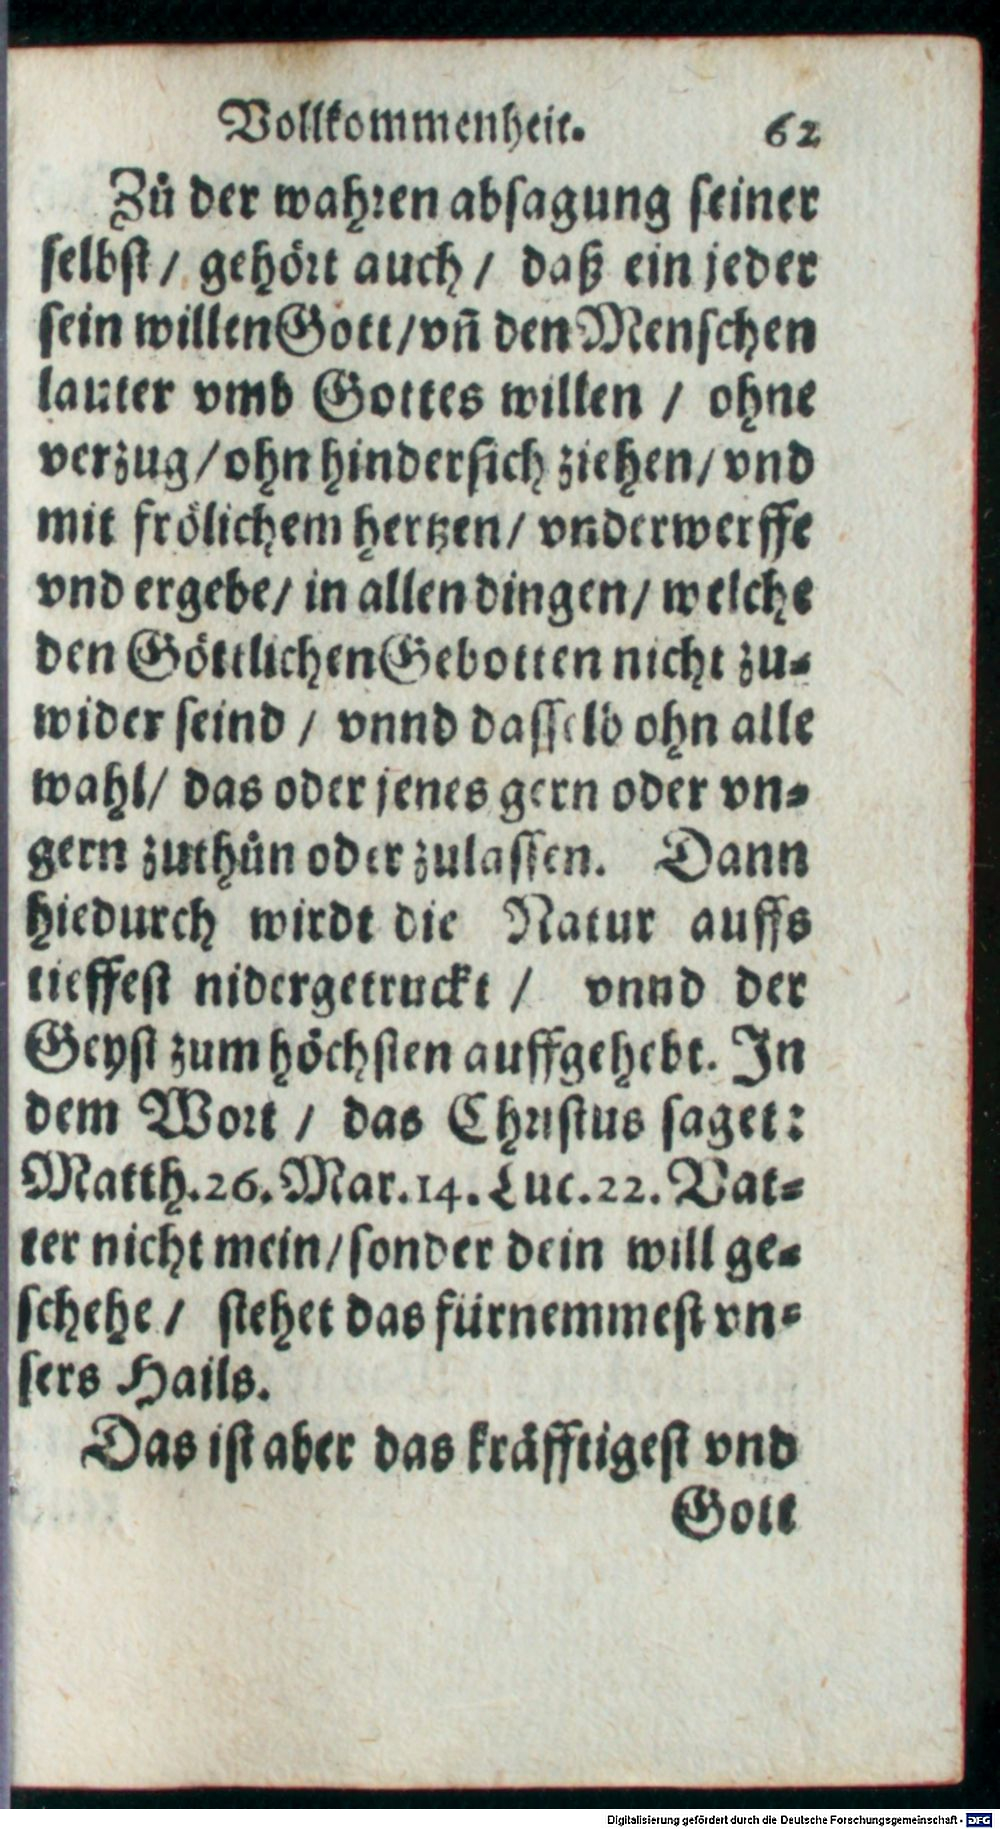 Vollkommenheit. 62
Zů der wahren absagung seiner
selbst / gehört auch / daß ein jeder
sein willen Gott / vñ den Menschen
lauter vmb Gottes willen / ohne
verzug / ohn hindersich ziehen / vnd
mit frölichem hertzen / vnderwerffe
vnd ergebe / in allen dingen / welche
den Göttlichen Gebotten nicht zu-
wider seind / vnnd dasselb ohn alle
wahl / das oder jenes gern oder vn-
gern zuthůn oder zulassen. Dann
hiedurch wirdt die Natur auffs
tieffest nidergetruckt / vnnd der
Geyst zum höchsten auffgehebt. In
dem Wort / das Christus saget:
Matth. 26. Mar. 14. Luc. 22. Vat-
ter nicht mein / sonder dein will ge-
schehe / stehet das fürnemmest vn-
sers Hails.
Das ist aber das kräfftigest vnd
Gott
Digitalisierung gefördert durch die Deutsche Forschungsgemeinschaft - DFG